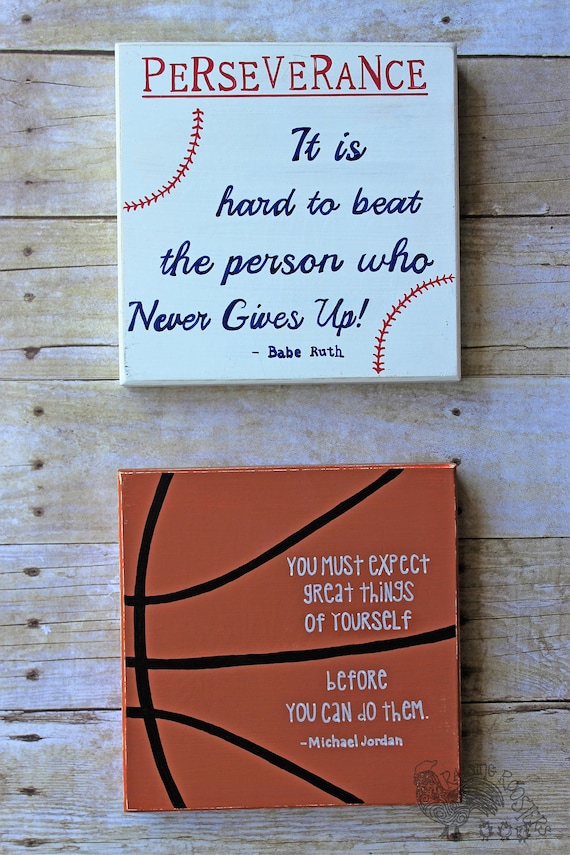 PERSEVERANCE
It is
hard to beat
the person who
Never Gives Up!
- Babe Ruth
YOU MUST EXPECT
great things
OF YOURSELF
before
YOU CAN do them.
-Michael Jordan